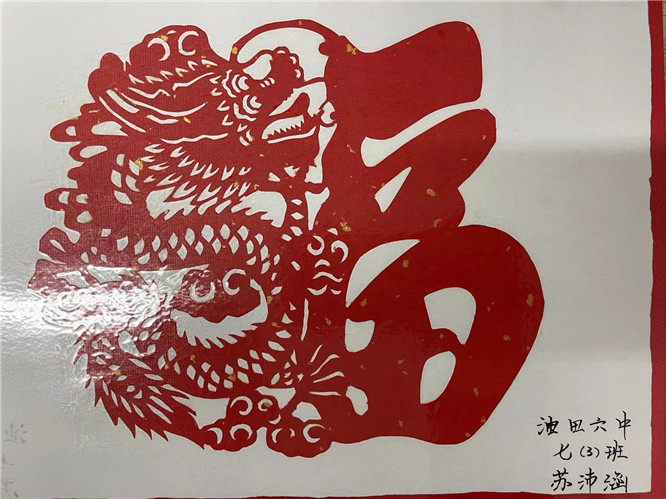 福
油田六中
七(3)班
苏沛涵